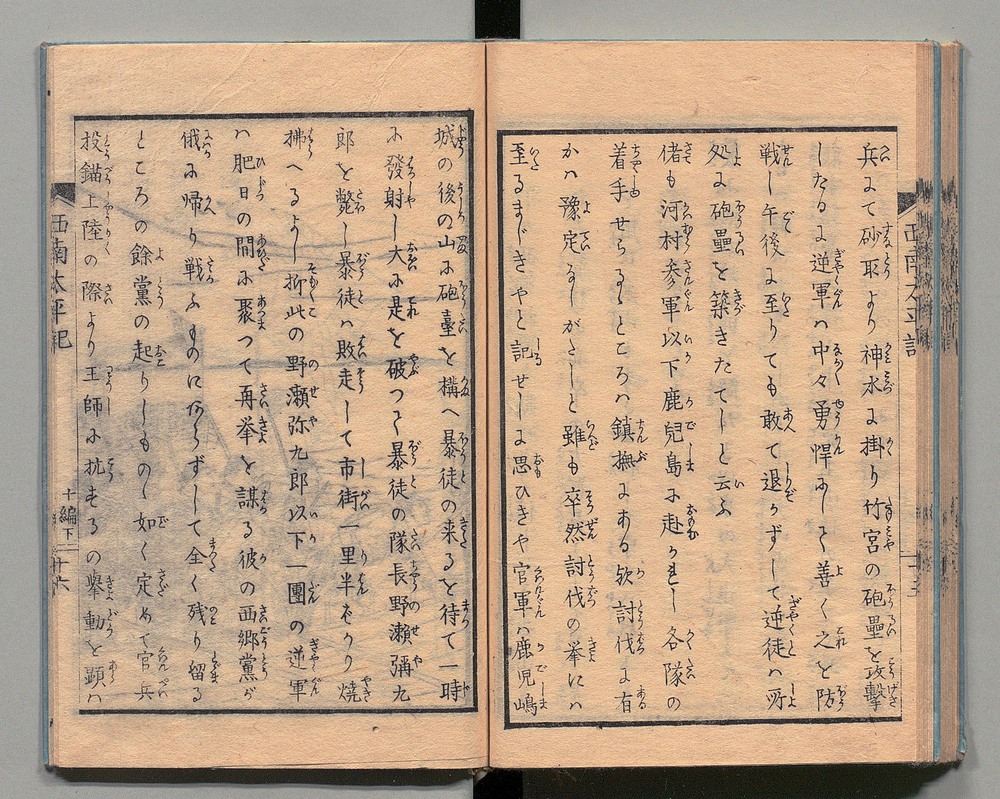 兵にて砂取より神水に掛り竹宮の砲壘を攻撃
したるに逆軍ハ中々勇悍にして善く之を防
戦し午後に至りても敢て退かずして逆徒ハ所
処に砲壘を築きたてしと云ふ
偖も河村参軍以下鹿兒島に赴かれし各隊の
着手せらるゝところハ鎮撫にある歟討伐に有
かハ豫定なしがたしと雖も卒然討伐の挙にハ
至るまじきやと記せしに思ひきや官軍ハ鹿児嶋
城の後の山に砲臺を構へ暴徒の来るを待て一時
に發射し大に是を破つて暴徒の隊長野瀬彌九
郎を斃し暴徒ハ敗走して市街一里半をかり焼
拂へるよし抑此の野瀬弥九郎以下一團の逆軍
ハ肥日の間に聚つて再挙を謀る彼の西郷黨が
俄に帰り戦ふものに何らずして全く残り留る
ところの餘黨の起りしものゝ如く定めて官兵
投錨上陸の際より王師に抗するの挙動を顕ハ
西南太平記
十編下
西南太平記